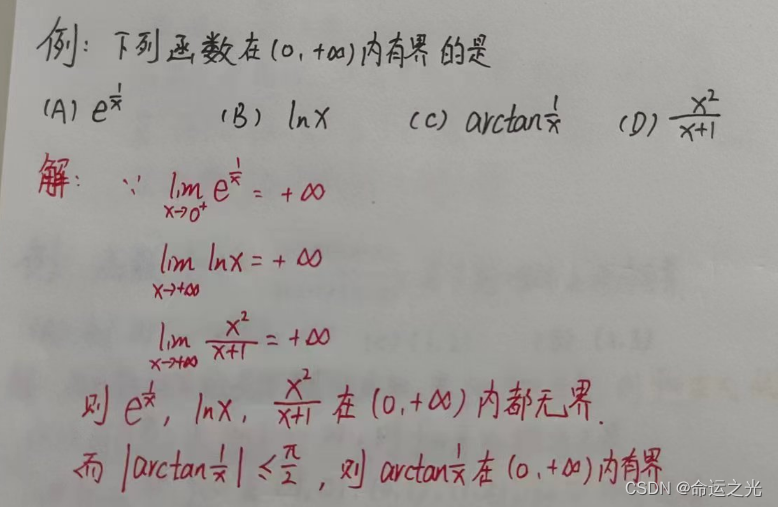 例：下列函数在(0,+∞)内有界的是
(A) e^{1/x} (B) lnx (C) arctan 1/x (D) x²/(x+1)
解：∵ lim_{x→0⁺} e^{1/x} = +∞
lim_{x→+∞} lnx = +∞
lim_{x→+∞} x²/(x+1) = +∞
则 e^{1/x}, lnx, x²/(x+1) 在(0,+∞)内都无界.
而 |arctan 1/x| ≤ π/2, 则 arctan 1/x 在(0,+∞)内有界
CSDN @命运之光